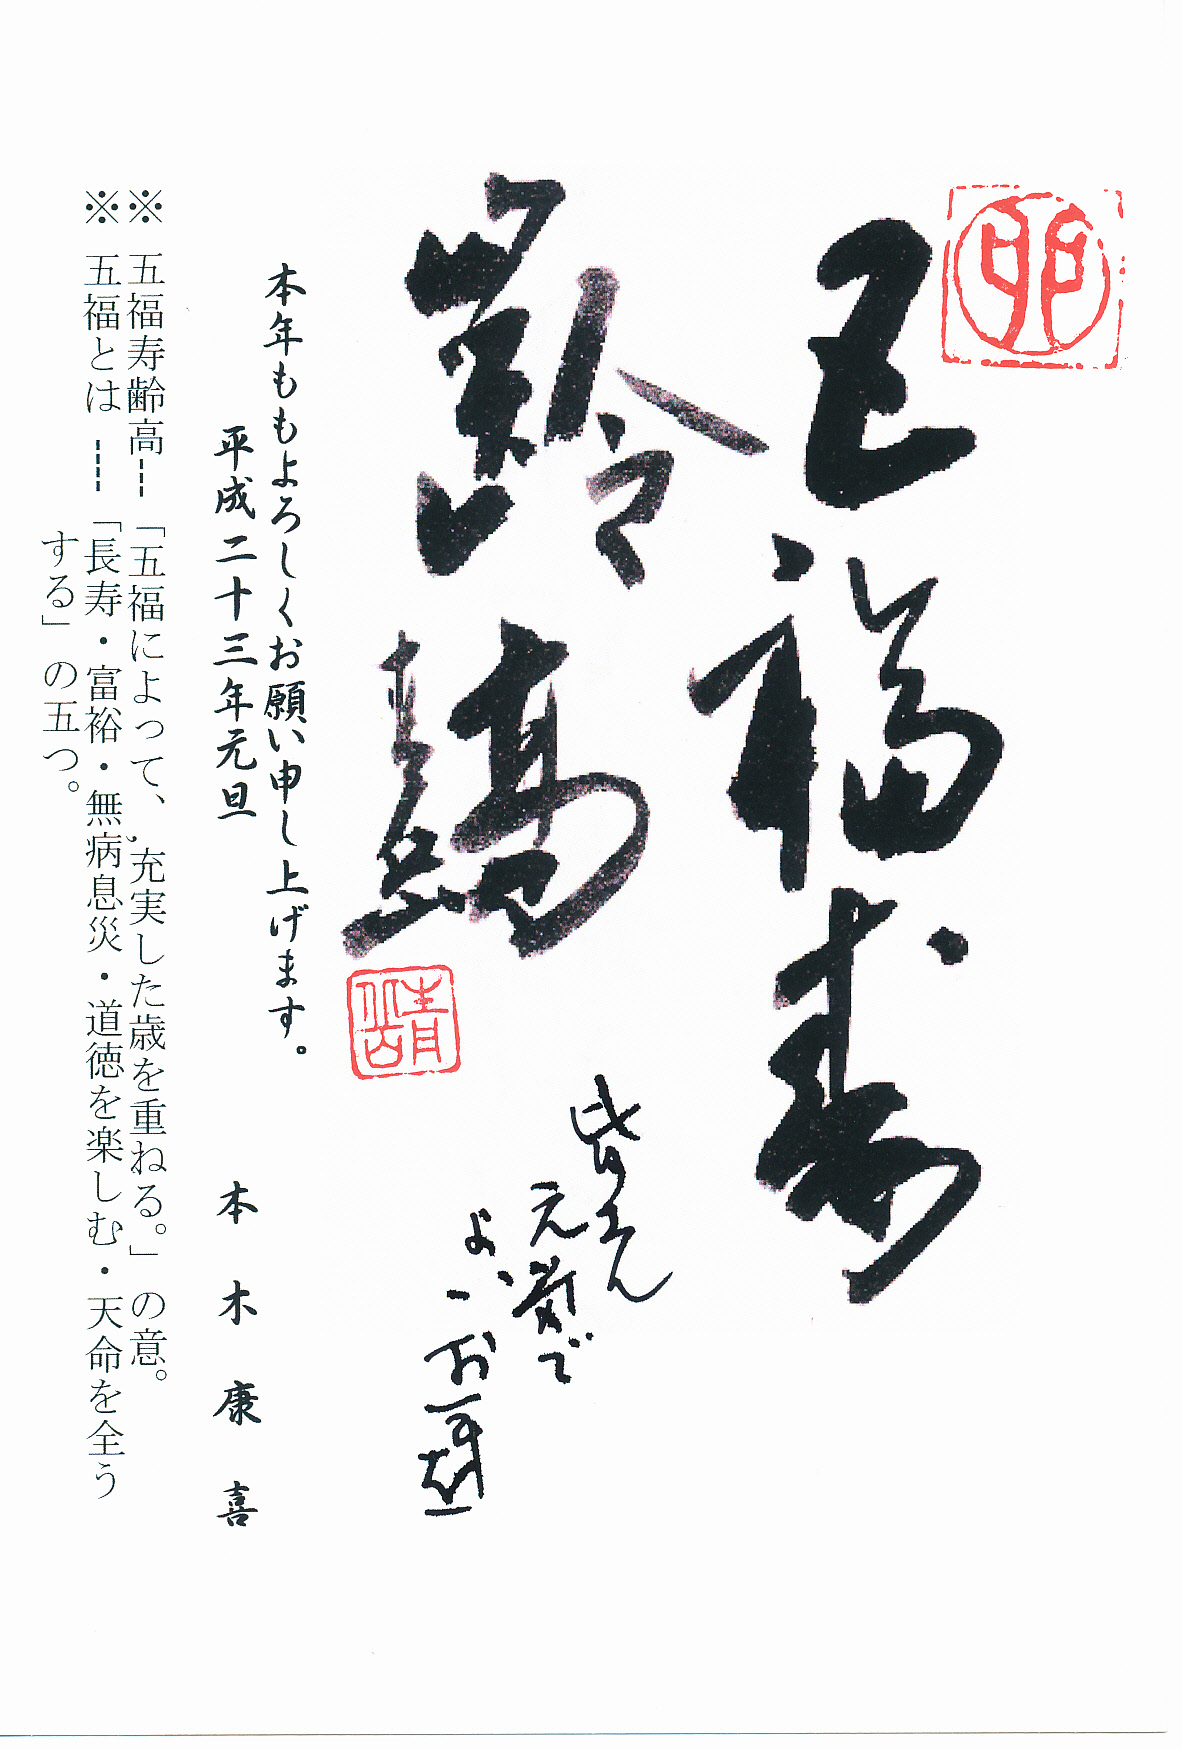 卯
五福寿
齢高
皆さん
元気で
よいお正月を
本年ももよろしくお願い申し上げます。
平成二十三年元旦
本木康喜
※ 五福寿齢高---「五福によって、,充実した歳を重ねる。」の意。
※ 五福とは ----「長寿・富裕・無病息災・道徳を楽しむ・天命を全う
する」の五つ。